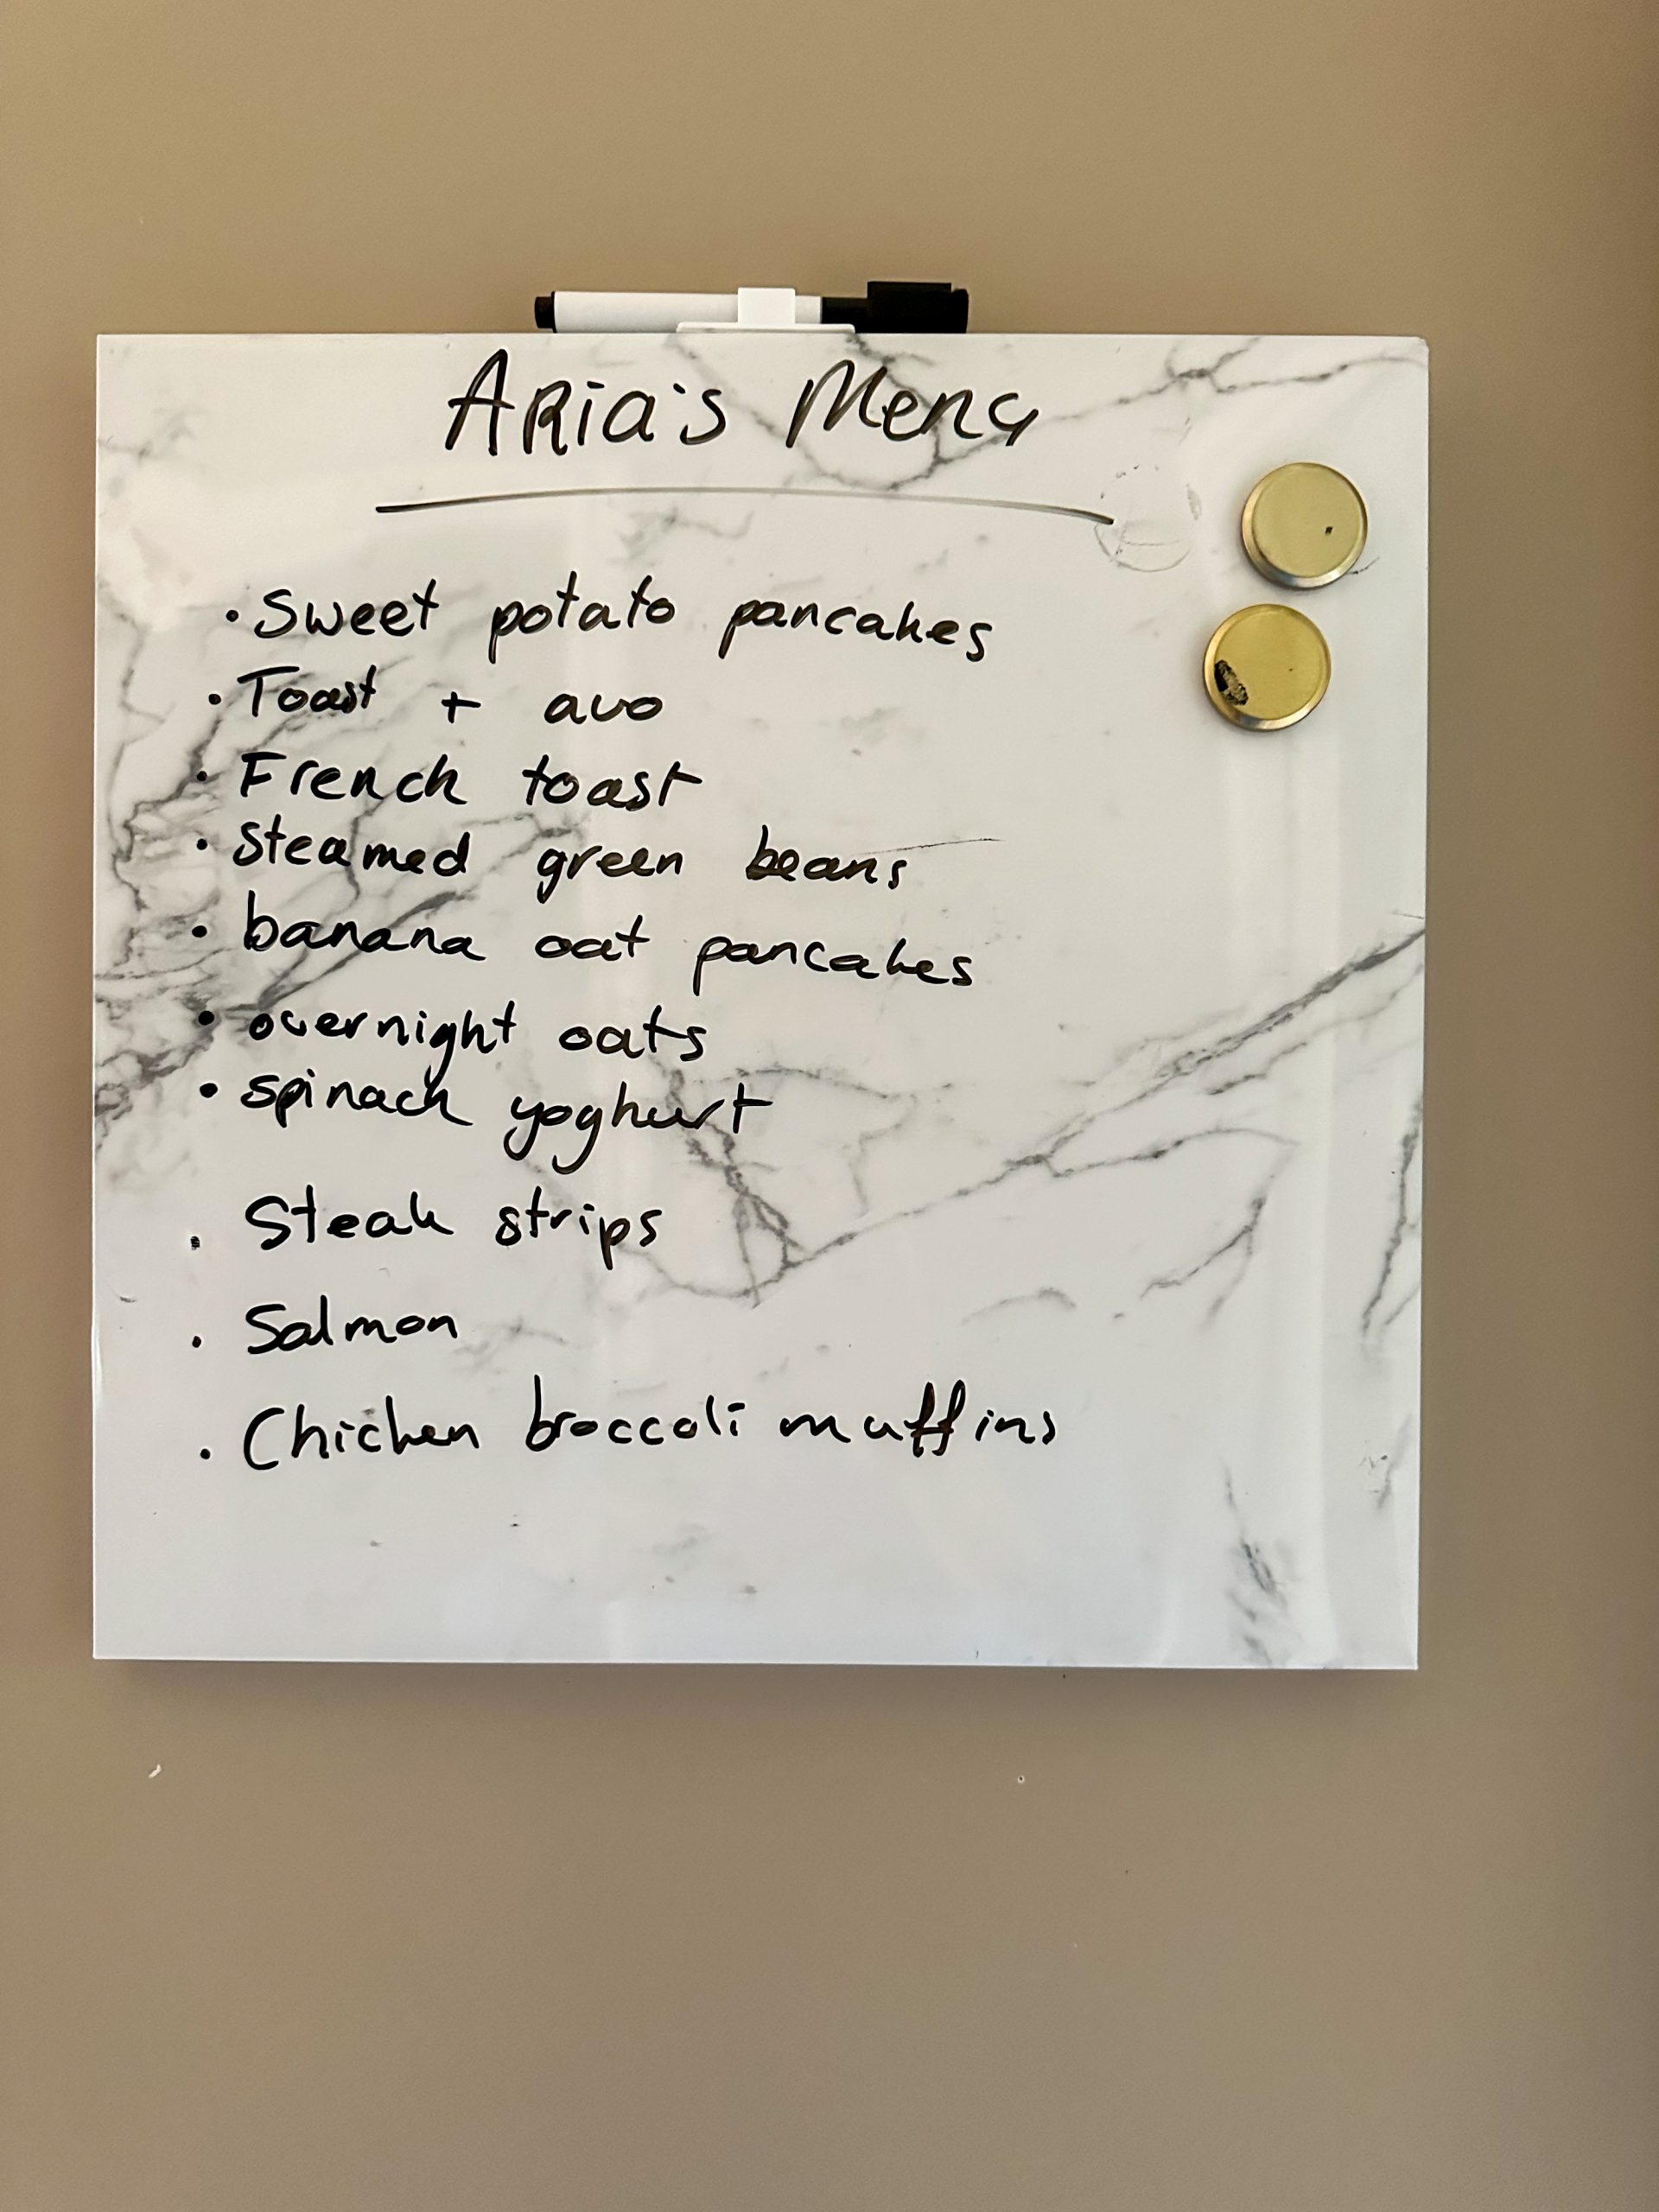 Aria's Menu
• Sweet potato pancakes
• Toast + avo
• French toast
• Steamed green beans
• banana oat pancakes
• overnight oats
• spinach yoghurt
• Steak strips
• Salmon
• Chicken broccoli muffins